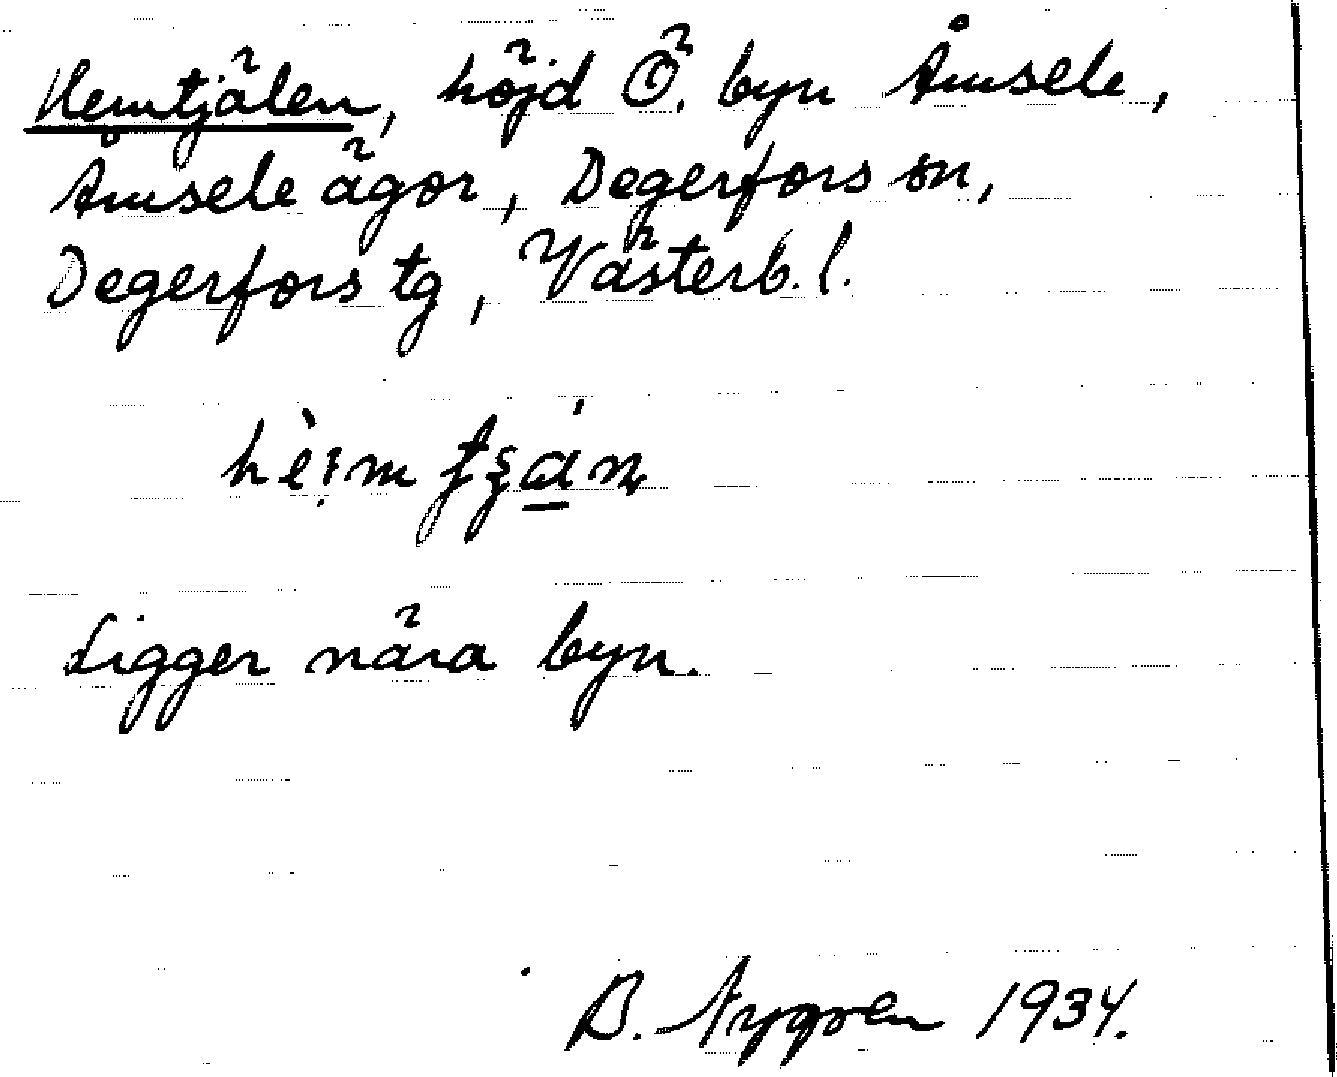 Hemtjälen, höjd Ö. byn Åmsele,
Åmsele ägor, Degerfors sn,
Degerfors tg, Västerb. l.
Ligger nära byn.
B. Nygren 1934.